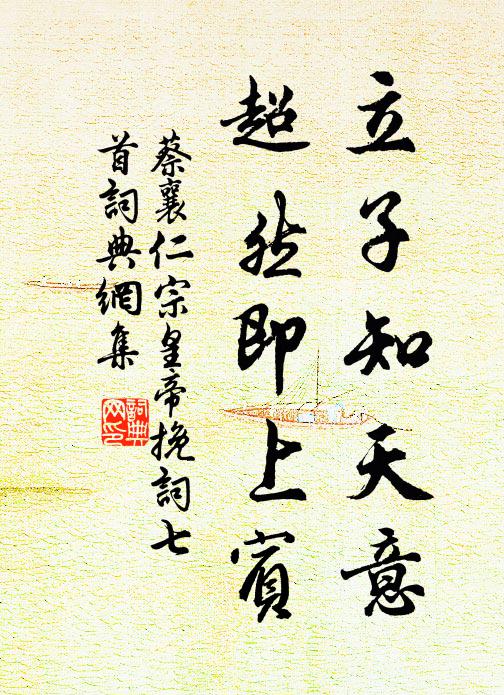 立子知天意
超然即上賓
蔡襄仁宗皇帝挽詞七
首詞典網集
詞典
网印